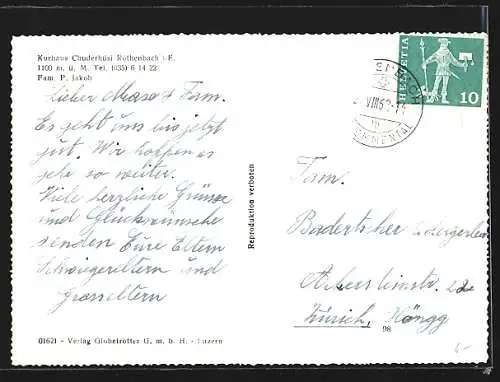 Kurhaus Chuderhüsi Röthenbach i.E.
1100 m. ü. M. Tel. (035) 6 14 22
Fam. P. Jakob
Lieber & Fam.
Es geht uns bis jetzt
gut. Wir hoffen es
gehe so weiter.
Viele herzliche Grüsse
und Glückwünsche
senden Eure Eltern
Schwiegereltern und
Grosseltern
01621 - Verlag Globetrotter G. m. b. H. - Luzern
Reproduktion verboten
HELVETIA
10
ENBACH
VIII
EMMENTAL
Fam.
Badertscher
Zürich, Höngg
98